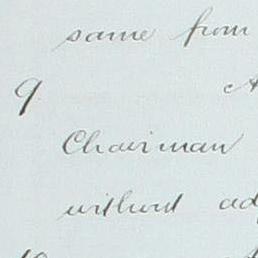 same from
9
Chairman
without ad